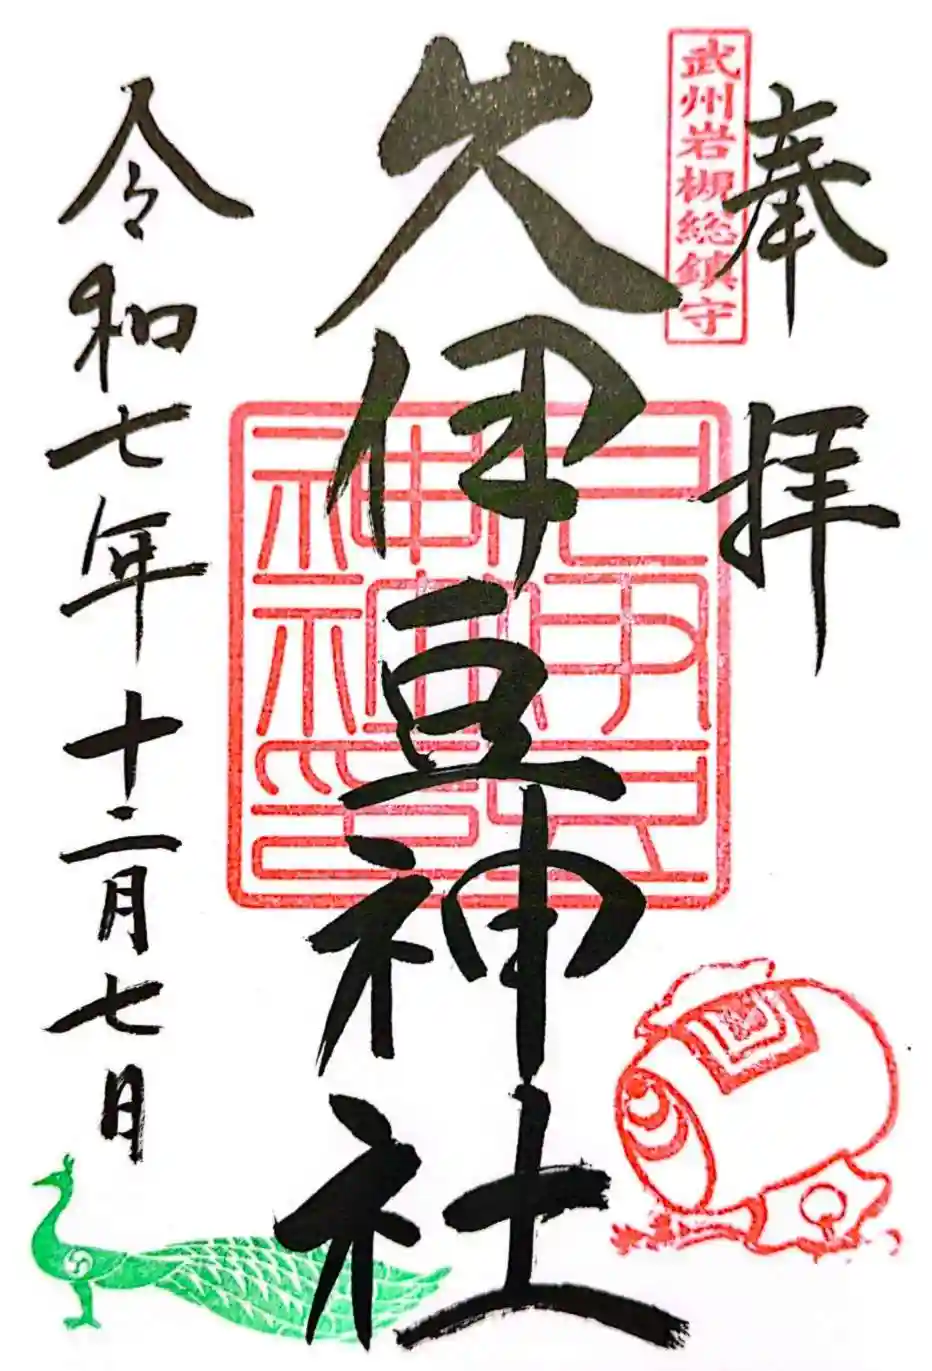 奉拝
武州岩槻総鎮守
久伊豆神社
久伊豆
神社
神印
令和七年十二月七日